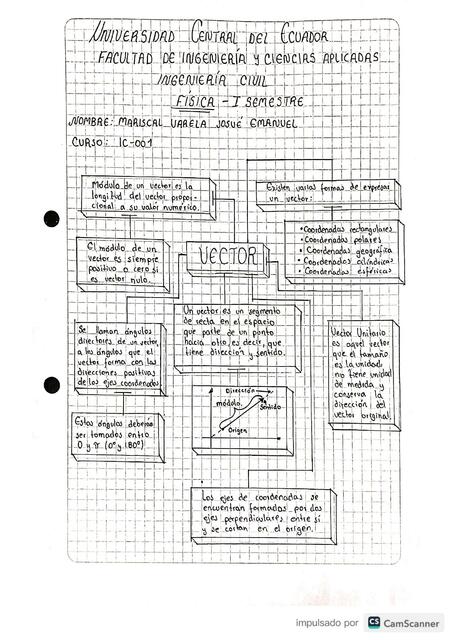 UNIVERSIDAD CENTRAL DEL ECUADOR
FACULTAD DE INGENIERÍA Y CIENCIAS APLICADAS
INGENIERÍA CIVIL
FÍSICA - I SEMESTRE
NOMBRE: MARISCAL VARELA JOSUÉ EMANUEL
CURSO: IC-001
Módulo de un vector es la
longitud del vector propor-
cional a su valor numérico.
Existen varias formas de expresar
un vector:
El módulo de un
vector es siempre
positivo o cero si
es vector nulo.
VECTOR
• Coordenadas rectangulares
• Coordenadas polares
• Coordenadas geográfica
• Coordenadas cilíndricas
• Coordenadas esféricas
Se llaman ángulos
directores de un vector,
a los ángulos que el
vector forma con las
direcciones positivas
de los ejes coordenados.
Un vector es un segmento
de recta en el espacio
que parte de un punto
hacia otro, es decir, que
tiene dirección y sentido.
Vector Unitario
es aquel vector
que el tamaño
es la unidad,
no tiene unidad
de medida y
conserva la
dirección del
vector original.
Dirección
módulo
Sentido
Origen
Estos ángulos deberán
ser tomados entre
0 y π (0° y 180°)
Los ejes de coordenadas se
encuentran formados por dos
ejes perpendiculares entre sí
y se cortan en el origen.
impulsado por CS CamScanner